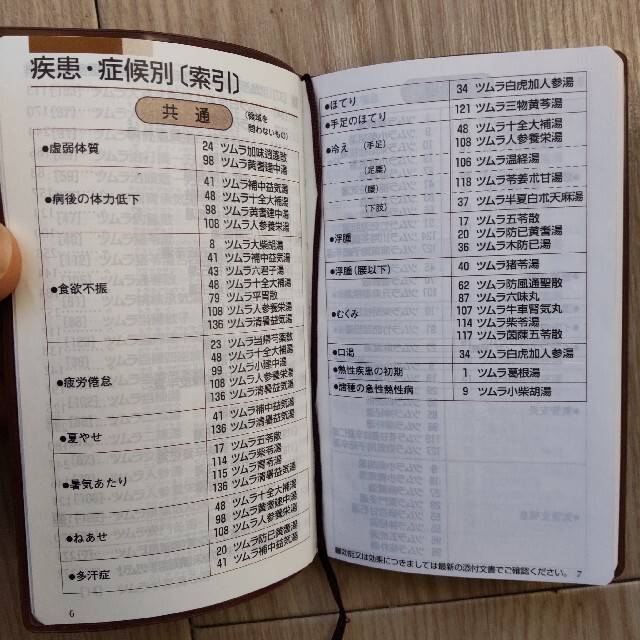 疾患・症候別〔索引〕
共通
(領域を
問わないもの)
●虚弱体質
24 ツムラ加味逍遙散
98 ツムラ黄耆建中湯
●病後の体力低下
41 ツムラ補中益気湯
48 ツムラ十全大補湯
98 ツムラ黄耆建中湯
108 ツムラ人参養栄湯
●食欲不振
8 ツムラ大柴胡湯
41 ツムラ補中益気湯
43 ツムラ六君子湯
48 ツムラ十全大補湯
79 ツムラ平胃散
108 ツムラ人参養栄湯
136 ツムラ清暑益気湯
●疲労倦怠
23 ツムラ当帰芍薬散
48 ツムラ十全大補湯
99 ツムラ小建中湯
108 ツムラ人参養栄湯
136 ツムラ清暑益気湯
●夏やせ
41 ツムラ補中益気湯
136 ツムラ清暑益気湯
●暑気あたり
17 ツムラ五苓散
114 ツムラ柴苓湯
115 ツムラ胃苓湯
136 ツムラ清暑益気湯
●ねあせ
48 ツムラ十全大補湯
98 ツムラ黄耆建中湯
108 ツムラ人参養栄湯
●多汗症
20 ツムラ防已黄耆湯
41 ツムラ補中益気湯
6
●ほてり
34 ツムラ白虎加人参湯
●手足のほてり
121 ツムラ三物黄芩湯
●冷え (手足)
48 ツムラ十全大補湯
108 ツムラ人参養栄湯
(足腰)
106 ツムラ温経湯
(腰)
118 ツムラ苓姜朮甘湯
(下肢)
37 ツムラ半夏白朮天麻湯
●浮腫
17 ツムラ五苓散
20 ツムラ防已黄耆湯
36 ツムラ木防已湯
●浮腫(腰以下)
40 ツムラ猪苓湯
●むくみ
62 ツムラ防風通聖散
87 ツムラ六味丸
107 ツムラ牛車腎気丸
114 ツムラ柴苓湯
117 ツムラ茵蔯五苓散
●口渇
34 ツムラ白虎加人参湯
●熱性疾患の初期
1 ツムラ葛根湯
●諸種の急性熱性病
9 ツムラ小柴胡湯
■効能又は効果につきましては最新の添付文書でご確認ください。 7